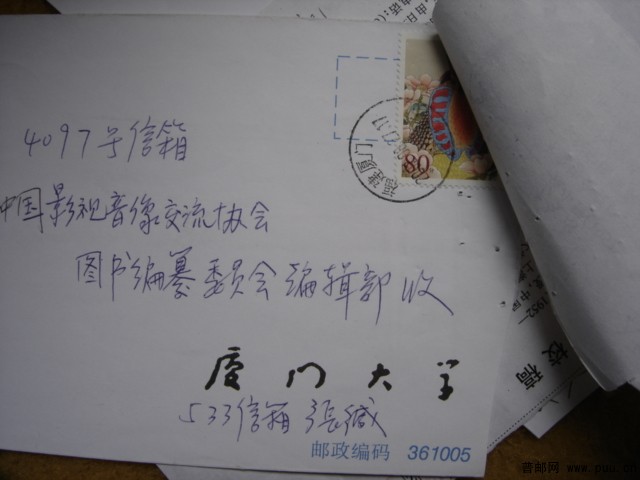 4097号信箱
中国影视音像交流协会
图书编纂委员会编辑部 收
80
福建厦门
厦门大学
533信箱 張緘
邮政编码 361005
校稿
1952—
普邮网 www.puu.cn